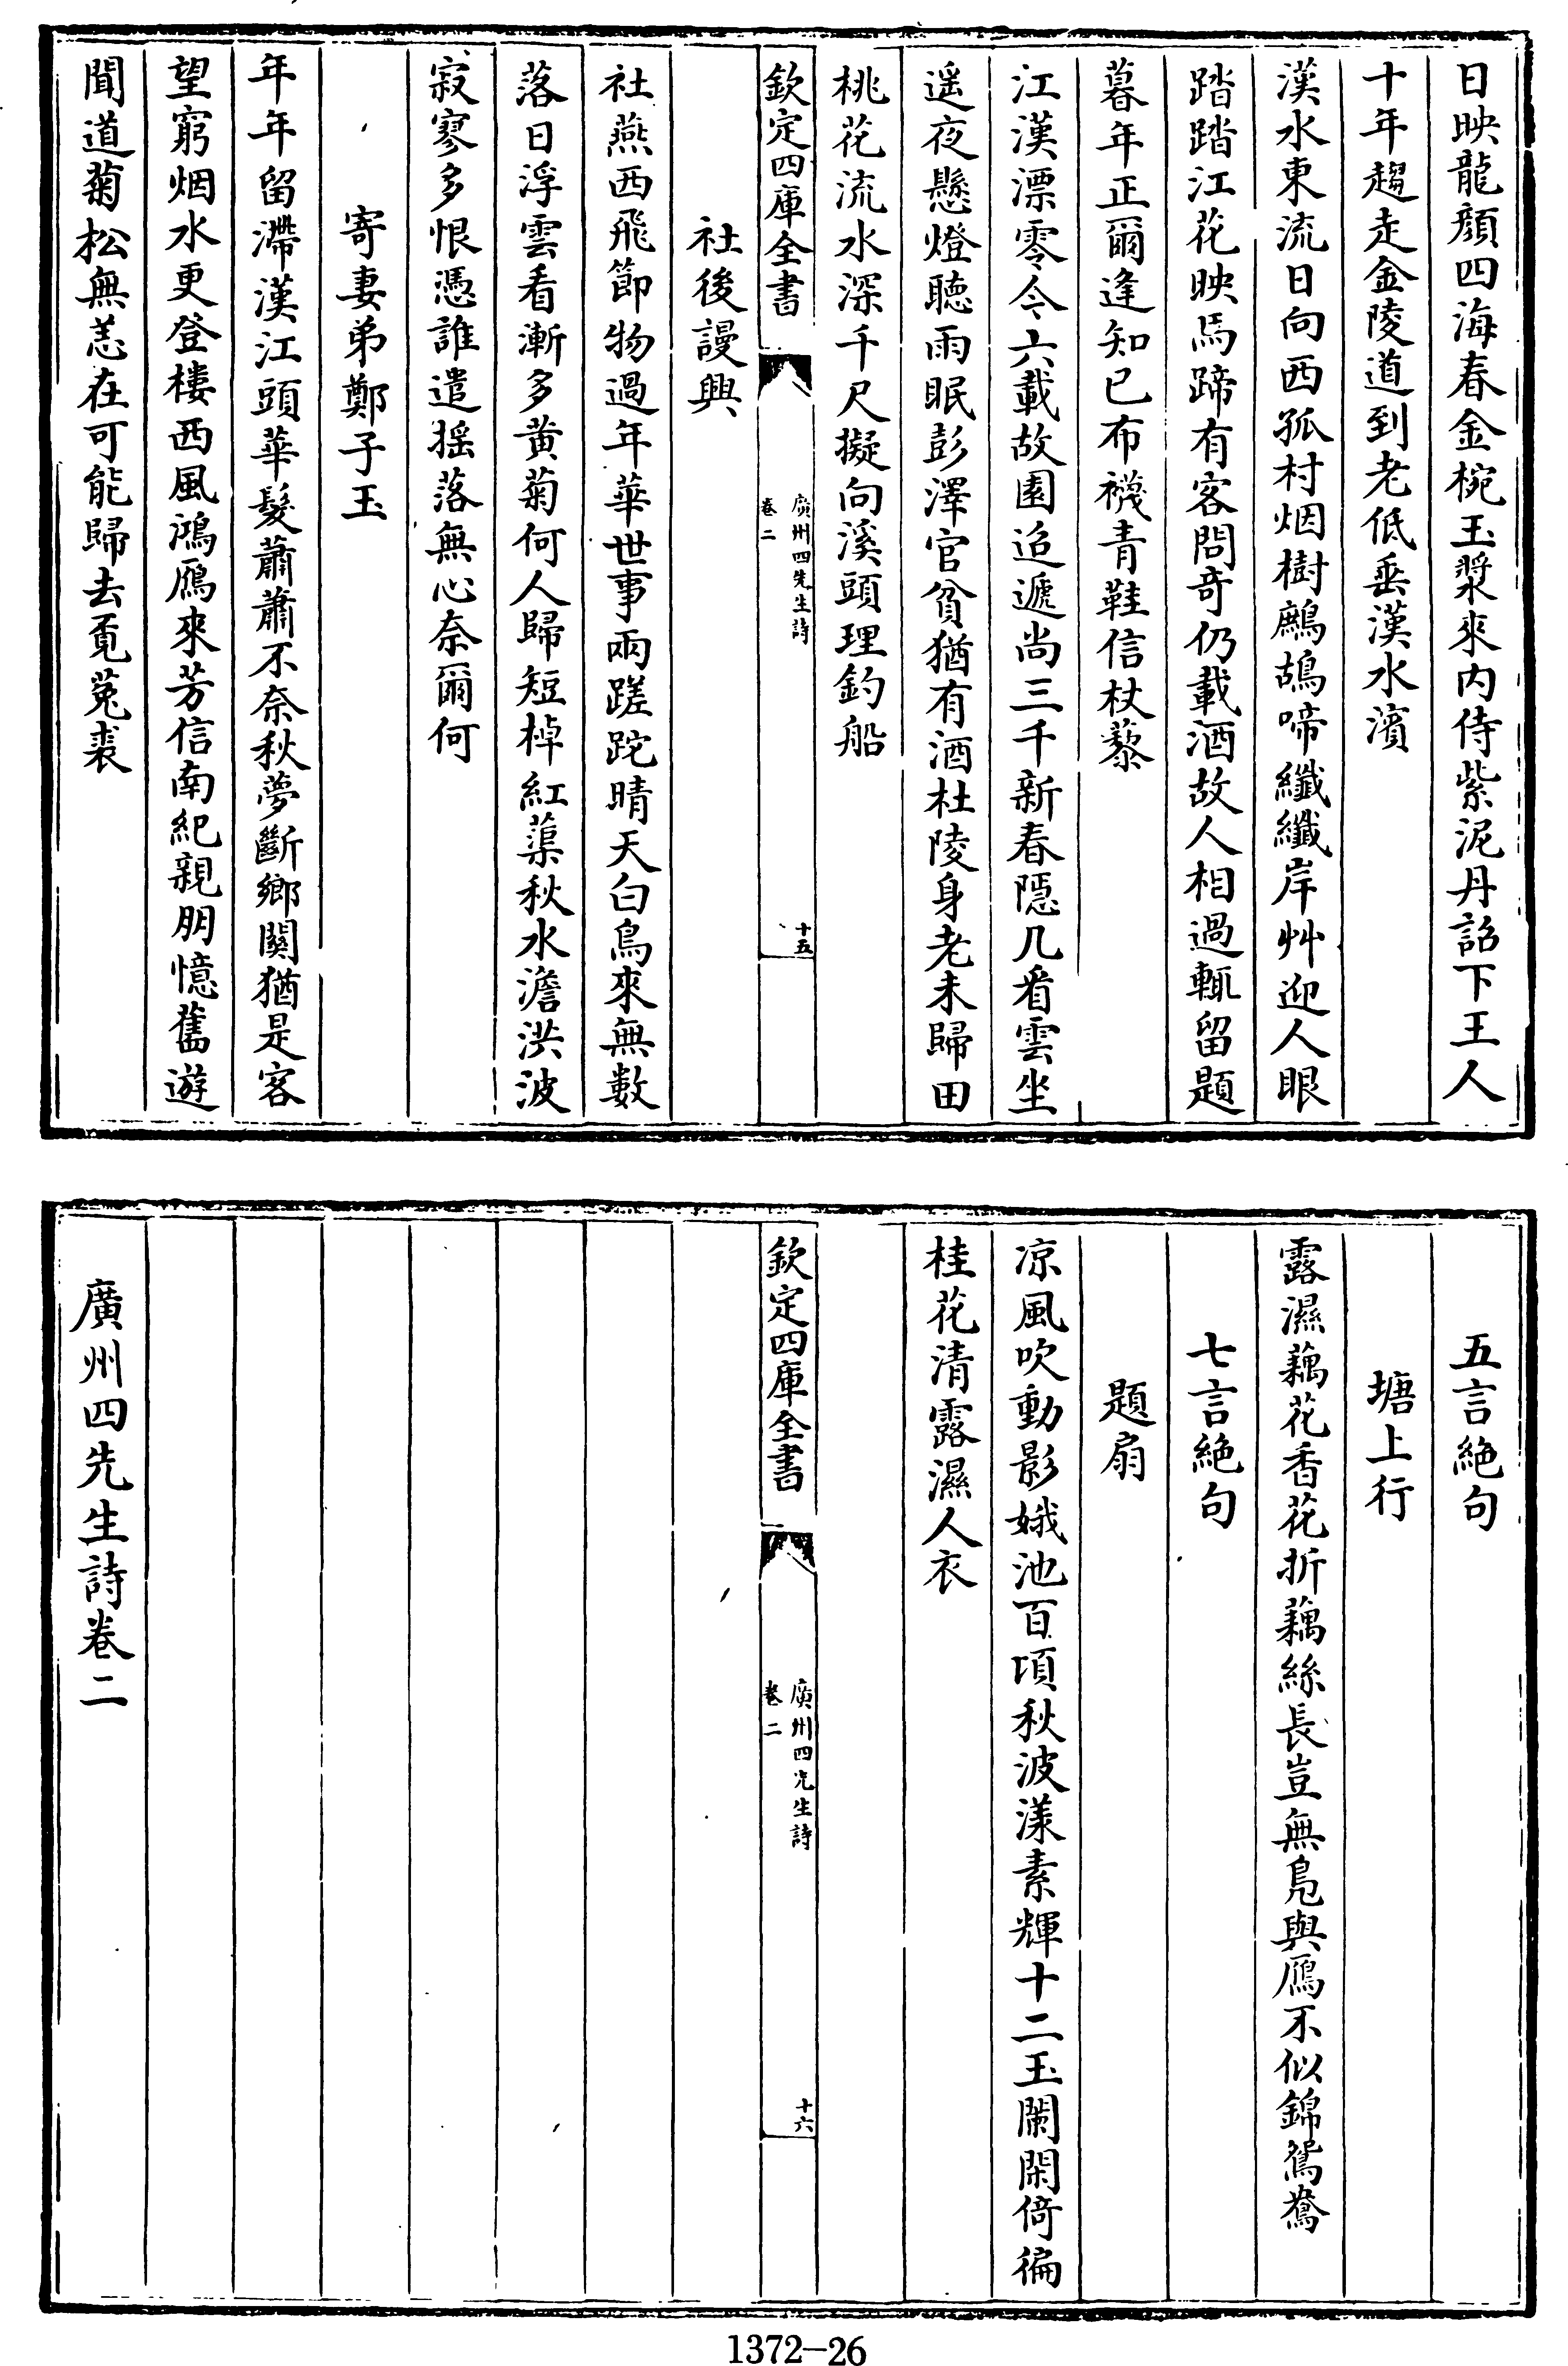 日映龍顔四海春金椀玉漿來内侍紫泥丹詔下王人
十年趨走金陵道到老低垂漢水濱
漢水東流日向西孤村烟樹鷓鴣啼纖纖岸艸迎人眼
踏踏江花映馬蹄有客問奇仍載酒故人相過輒留題
暮年正爾逢知已布襪青鞋信杖藜
江漢漂零今六載故園迢遞尚三千新春隠几看雲坐
遥夜懸燈聴雨眠彭澤官貧猶有酒杜陵身老未歸田
桃花流水深千尺擬向溪頭理釣船
欽定四庫全書
廣州四先生詩
卷二
十五
社後謾興
社燕西飛節物過年華世事兩蹉跎晴天白鳥來無數
落日浮雲看漸多黄菊何人歸短棹紅蕖秋水澹洪波
寂寥多恨憑誰遣揺落無心奈爾何
寄妻弟鄭子玉
年年留滯漢江頭華髪蕭蕭不奈秋夢斷鄉關猶是客
望窮烟水更登樓西風鴻鴈來芳信南紀親朋憶舊遊
聞道菊松無恙在可能歸去覓菟裘
五言絶句
塘上行
露濕藕花香花折藕絲長豈無鳬與鴈不似錦鴛鴦
七言絶句
題扇
凉風吹動影娥池百頃秋波漾素輝十二玉闌閑倚徧
桂花清露濕人衣
欽定四庫全書
廣州四先生詩
卷二
十六
廣州四先生詩卷二
1372-26